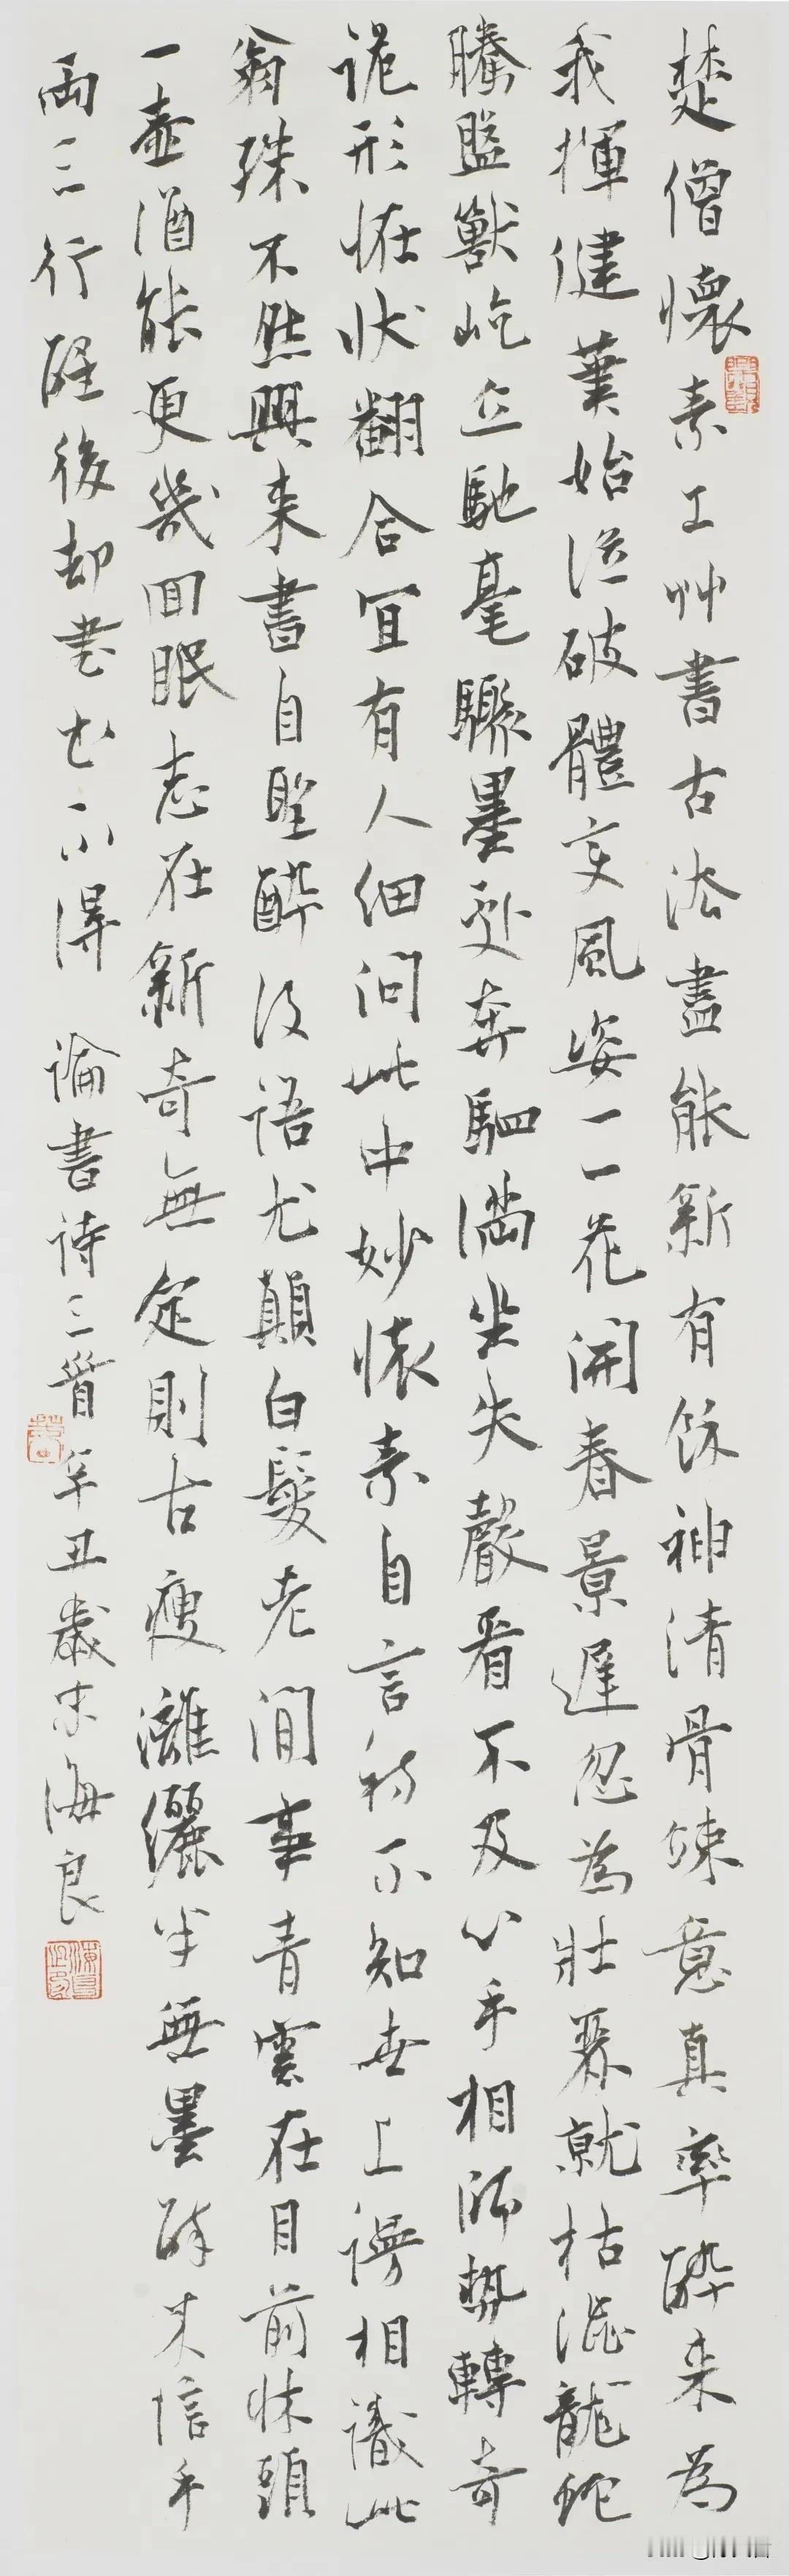 楚僧懷素工艸書古法盡能新有餘神清骨竦意真率醉来為
我揮健筆始從破體變風姿一一花開春景遲忽為壯麗就枯澀龍蛇
騰盤獸屹立馳毫驟墨劇奔駟滿坐失聲看不及心手相師勢轉奇
詭形怪狀翻合宜有人細問此中妙懷素自言初不知世上謾相識此
翁殊不然興来書自聖醉後語尤顛白髮老閒事青雲在目前床頭
一壺酒能更幾回眠志在新奇無定則古瘦灕纚半無墨醉来信手
兩三行醒後却書書不得 論書诗三首 辛丑歲末海良